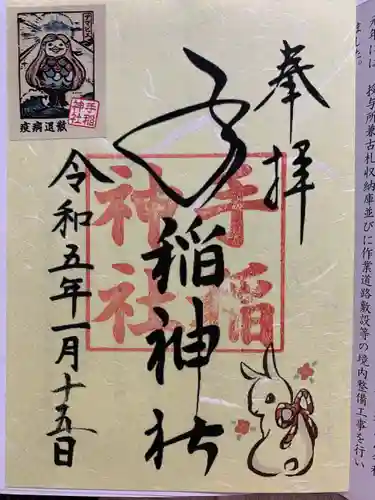 奉拝
手稲神社
手稲
神社
令和五年一月十五日
アマビエ
手稲
神社
疫病退散
ました。
授与所兼古札収納庫並びに作業道路敷設等の境内整備工事を行い